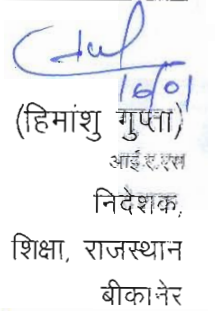 16/01
(हिमांशु गुप्ता)
आई.ए.एस
निदेशक,
शिक्षा, राजस्थान
बीकानेर